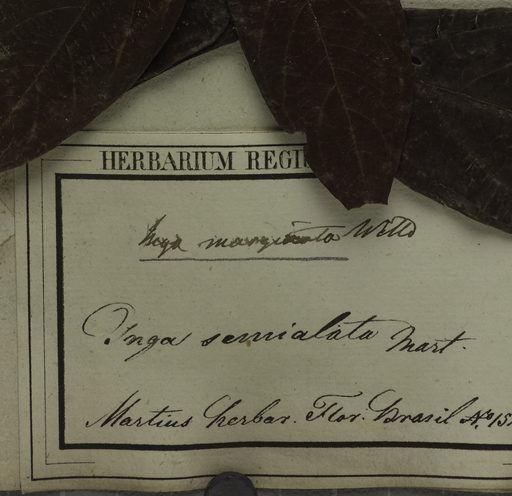 HERBARIUM REGI
Inga marginata Willd
Inga semialata Mart.
Martius herbar. Flor. brasil No 15